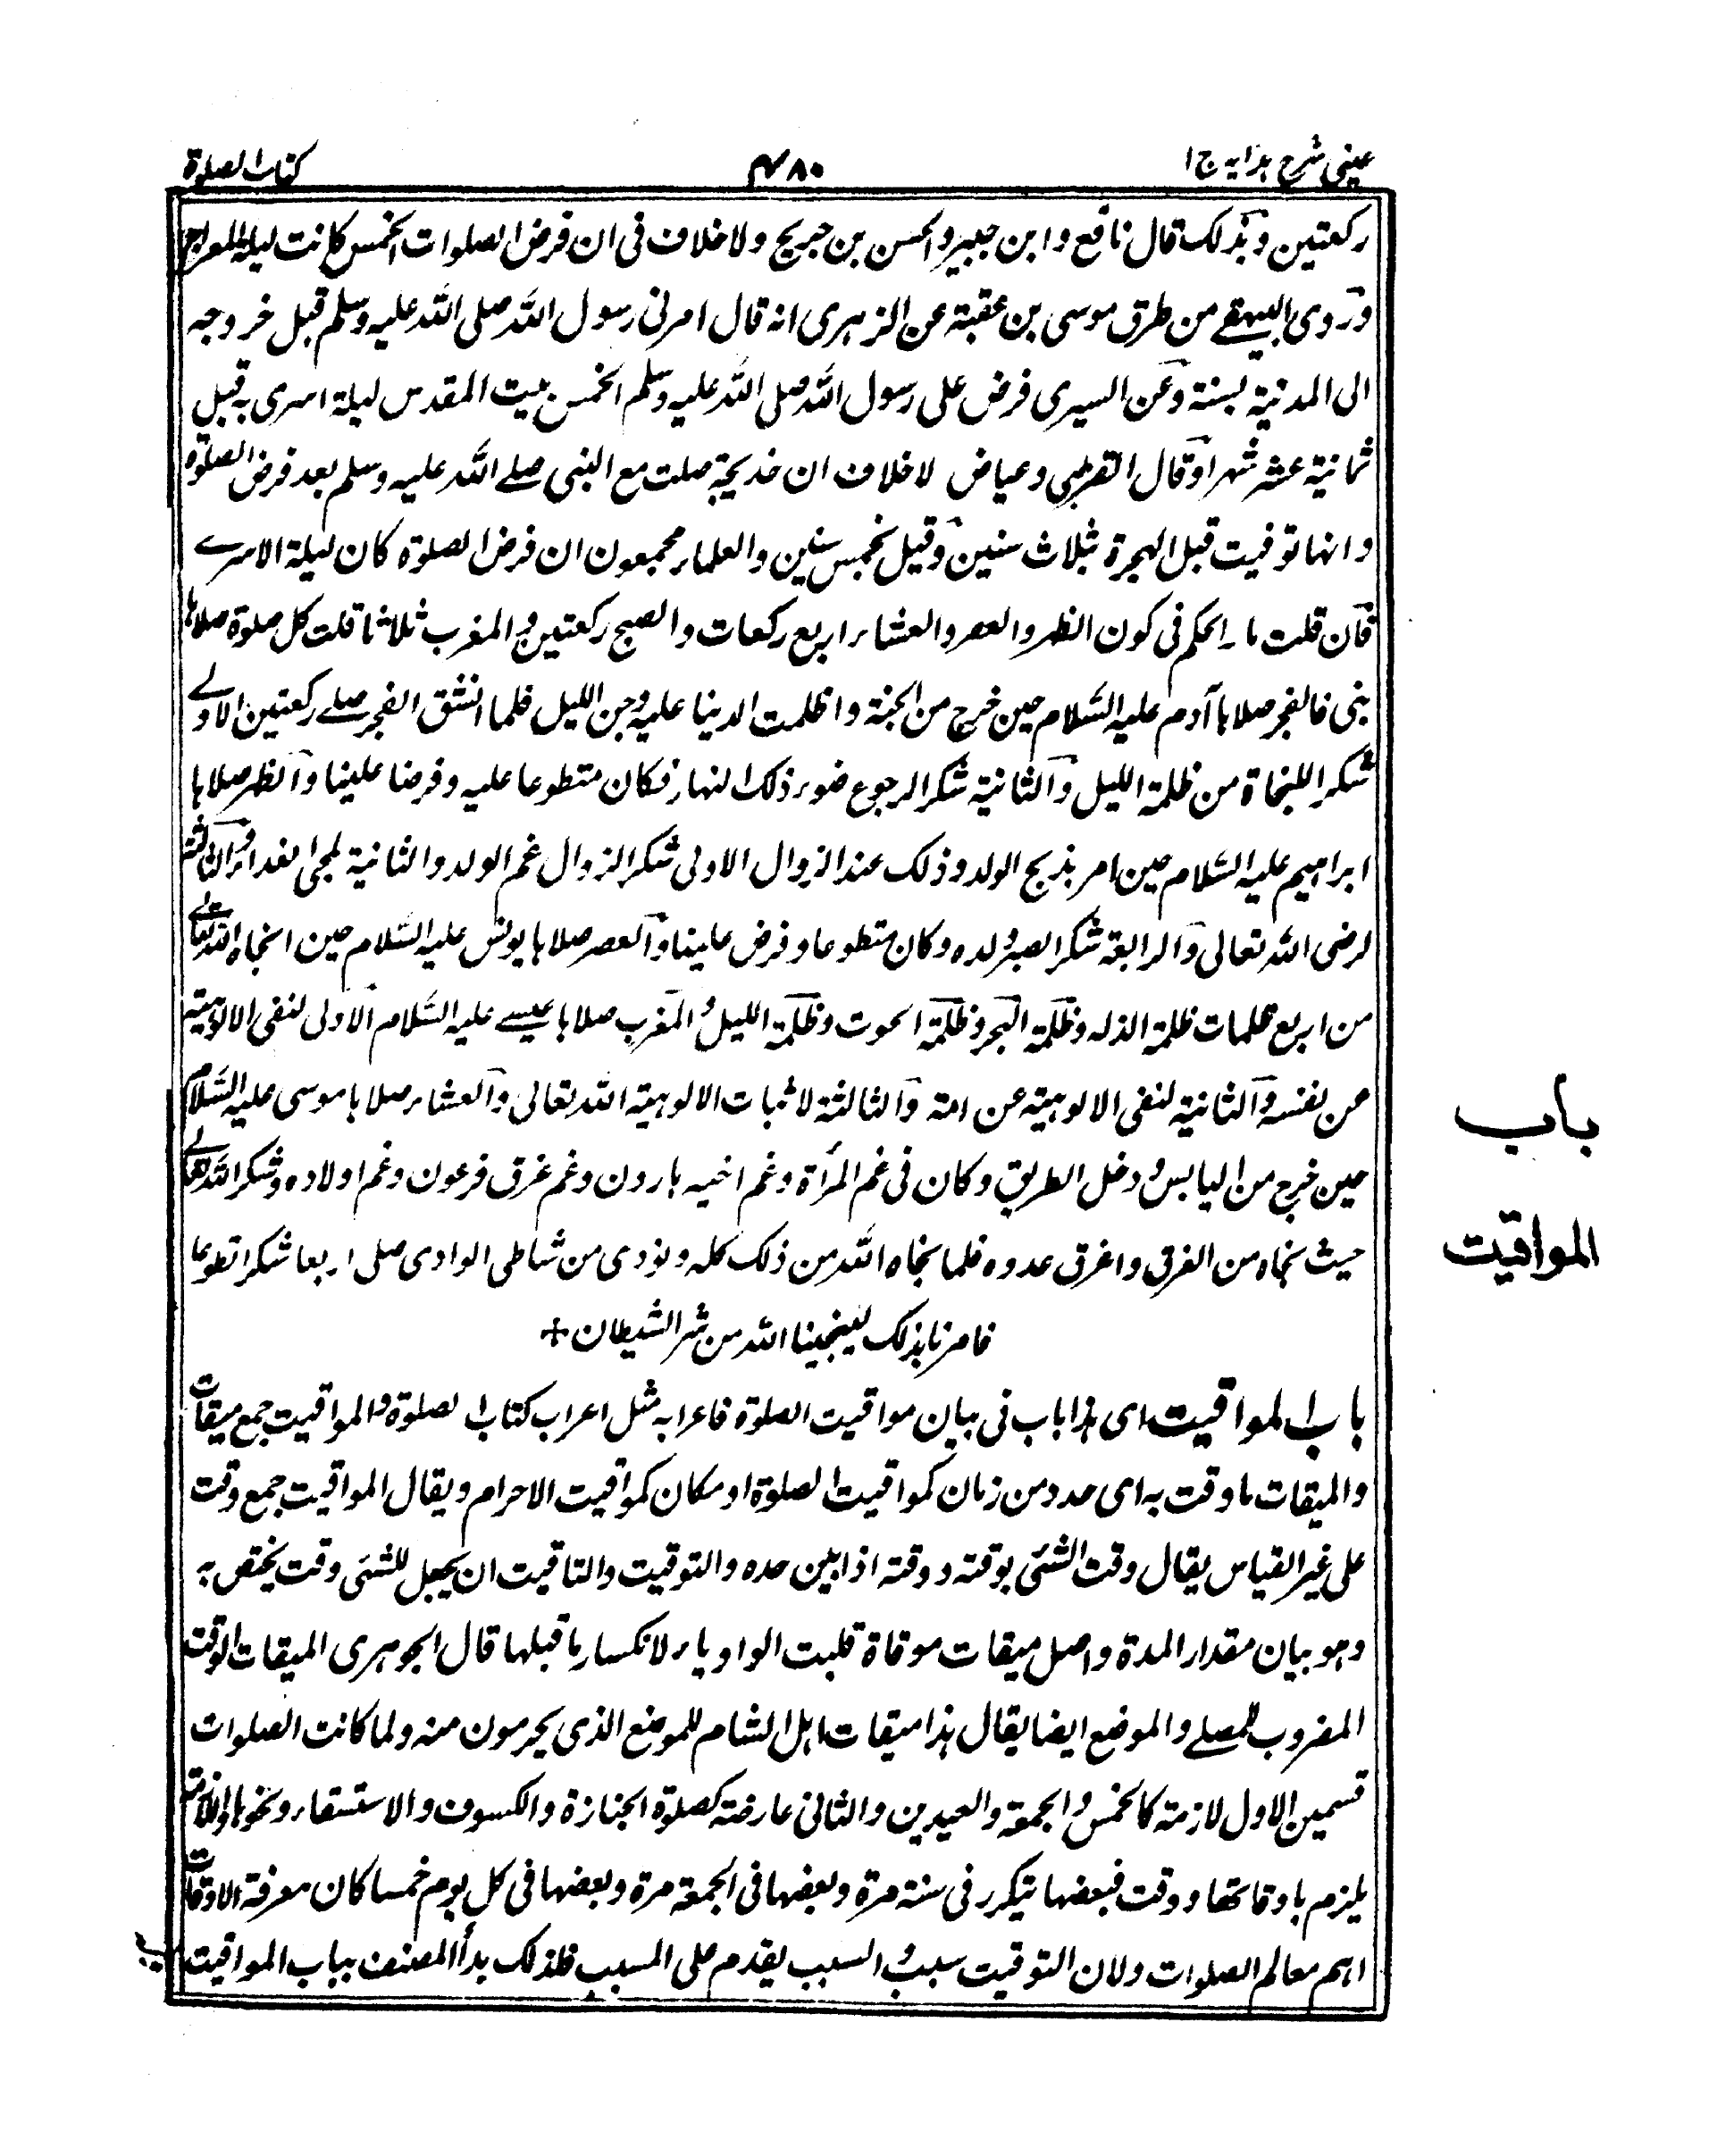 عينى شرح هدايه ج ا
۴۸۰
كتاب الصلوة
ركعتين وبذلك قال نافع وابن جبير والحسن بن جريج ولا خلاف فى ان فرض الصلوات الخمس كانت ليلة المعراج
وروى البيهقے من طرق موسى بن عقبة عن الزهرى انه قال امرنى رسول الله صلى الله عليه وسلم قبل خروجه
الى المدنية بسنة وعن السيرى فرض على رسول الله صلى الله عليه وسلم الخمس ببيت المقدس ليلة اسرى به قبل
ثمانية عشر شهرا وقال القرطبى وعياض لا خلاف ان خديجة صلت مع النبى صلے الله عليه وسلم بعد فرض الصلوة
وانها توفيت قبل الهجرة بثلاث سنين وقيل بخمس سنين والعلماء مجمعون ان فرض الصلوة كان ليلة الاسرے
فان قلت ما الحكم فى كون الظهر والعصر والعشاء اربع ركعات والصبح ركعتين والمغرب ثلاثا قلت كل صلوة صلاها
نبى فالفجر صلاها آدم عليه السلام حين خرج من الجنة واظلمت الدنيا عليه وجن الليل فلما انشق الفجر صلے ركعتين الاولے
شكرا للنجاة من ظلمة الليل والثانية شكرا لرجوع ضوء ذلك النهار فكان متطوعا عليه وفرضا علينا والظهر صلاها
ابراهيم عليه السلام حين امر بذبح الولد وذلك عند الزوال الاولى شكرا لزوال غم الولد والثانية لمجئ الفداء والثالثة
لرضى الله تعالى والرابعة شكرا لصبر ولده وكان متطوعا وفرض علينا والعصر صلاها يونس عليه السلام حين انجاه الله تعالے
من اربع ظلمات ظلمة الذلة وظلمة البحر وظلمة الحوت وظلمة الليل والمغرب صلاها عيسے عليه السلام الاولى لنفى الالوهية
عن نفسه والثانية لنفى الالوهية عن امه والثالثة لاثبات الالوهية الله تعالى والعشاء صلاها موسى عليه السلام
حين خرج من اليابس ودخل الطريق وكان فى غم المرأة وغم اخيه هارون وغم غرق فرعون وغم اولاده وشكر الله تعالے
حيث نجاه من الغرق واغرق عدوه فلما نجاه الله من ذلك كله ونودى من شاطى الوادى صلى اربعا شكرا تطوعا
فامرنا بذلك لينجينا الله من شر الشيطان +
باب المواقيت اى هذا باب فى بيان مواقيت الصلوة فاعرابه مثل اعراب كتاب الصلوة والمواقيت جمع ميقات
والميقات ما وقت به اى حدد من زمان كمواقيت الصلوة او مكان كمواقيت الاحرام ويقال المواقيت جمع وقت
على غير القياس يقال وقت الشئى يوقته ووقته اذا بين حده والتوقيت والتاقيت ان يجعل للشئى وقت يختص به
وهو بيان مقدار المدة واصل ميقات موقاة قلبت الواو ياء لانكسار ما قبلها قال الجوهرى الميقات الوقت
المضروب للمصلے والموضع ايضا يقال هذا ميقات اهل الشام للموضع الذى يحرمون منه ولما كانت الصلوات
قسمين الاول لازمة كالخمس والجمعة والعيدين والثانى عارضة كصلوة الجنازة والكسوف والاستسقاء ونحوها واللازمة
يلزم باوقاتها ووقت فبعضها يتكرر فى سنة مرة وبعضها فى الجمعة مرة وبعضها فى كل يوم خمسا كان معرفة الاوقات
اهم معالم الصلوات ولان التوقيت سبب والسبب يقدم على المسبب فلذلك بدأ المصنف بباب المواقيت
باب
المواقيت